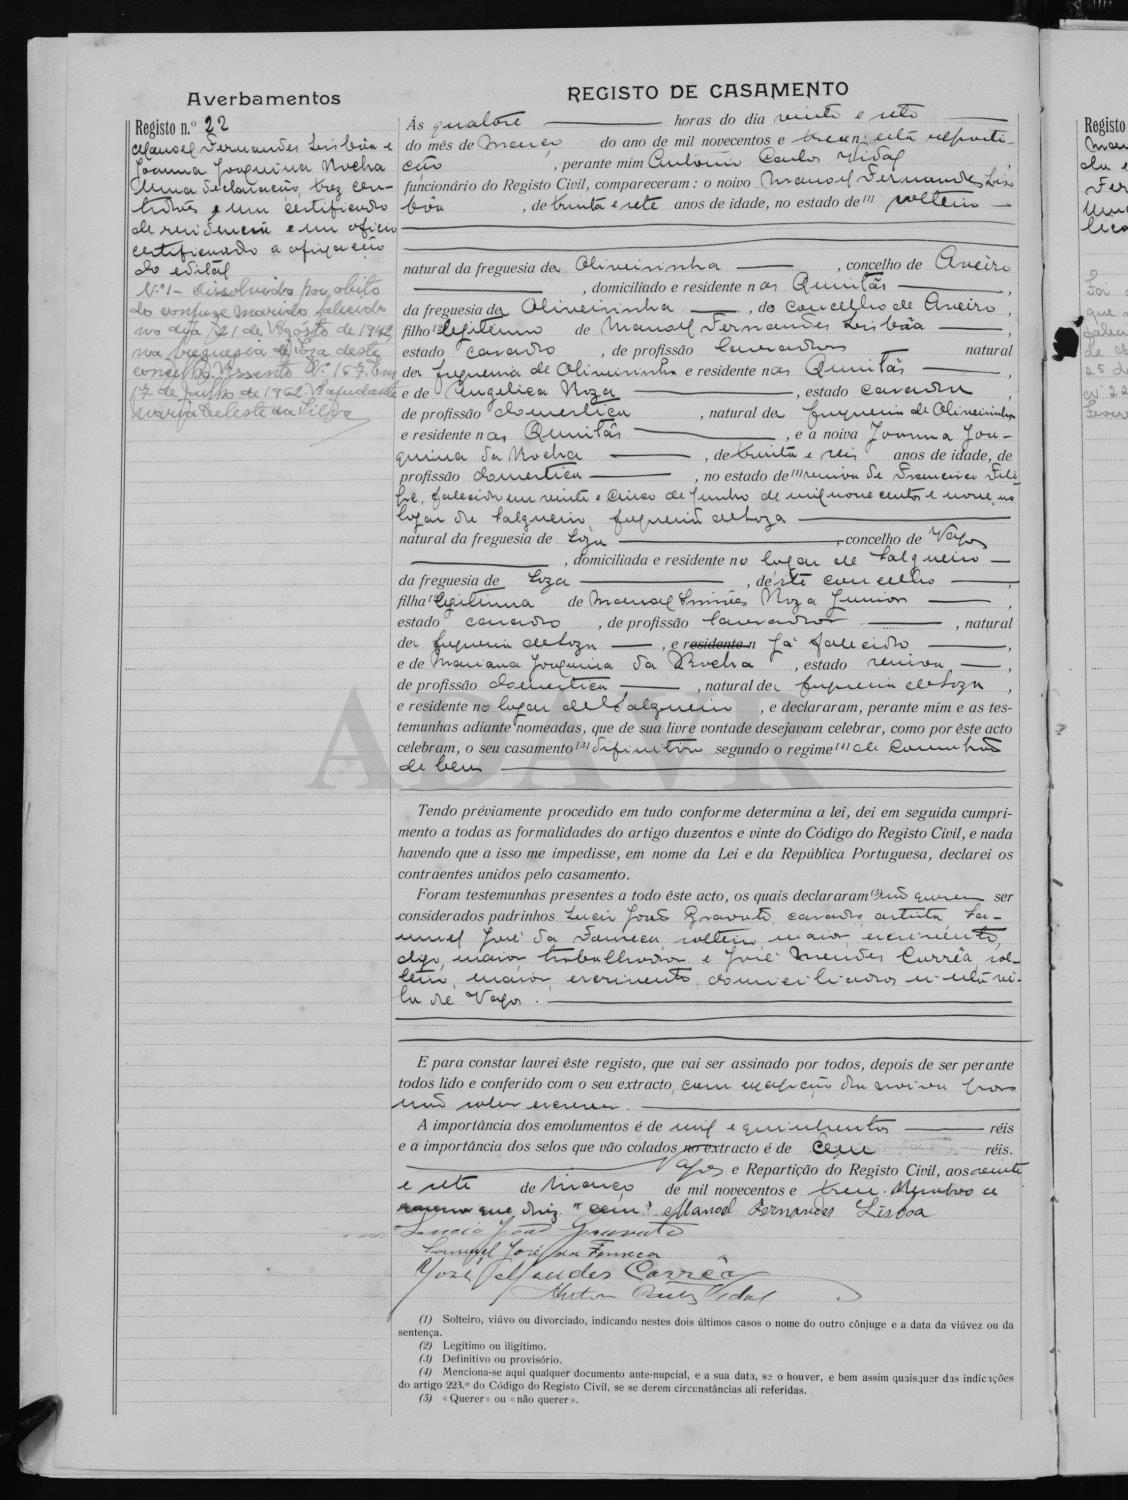 Averbamentos
Registo n.º 22
Manoel Fernandes Lisbôa e
Joanna Joaquina Rocha
Uma declaração, trez cer-
tidões e um certificado
de residencia e um oficio
certificando a afixação
do edital
N.º 1 - Dissolvido por obito
do conjuge marido falecido
no dia 21 de Agosto de 1942
na freguesia de Soza deste
concelho. Assento N.º 167. Em
17 de Junho de 1962. A ajudante
Maria Celeste da Silva
REGISTO DE CASAMENTO
Às quatorse horas do dia vinte e sete
do mês de Março do ano de mil novecentos e treze, n'esta reparti-
ção, perante mim Antonio Carlos Vidal,
funcionário do Registo Civil, compareceram: o noivo Manoel Fernandes Lis-
bôa, de trinta e sete anos de idade, no estado de (1) solteiro
natural da freguesia de Oliveirinha, concelho de Aveiro
, domiciliado e residente nas Quintãs,
da freguesia de Oliveirinha, do concelho de Aveiro,
filho (2) legitimo de Manoel Fernandes Lisbôa,
estado casado, de profissão lavrador natural
da freguesia de Oliveirinha e residente nas Quintãs
e de Angelica Roza, estado casada,
de profissão domestica, natural da freguesia de Oliveirinha
e residente nas Quintãs, e a noiva Joanna Joa-
quina da Rocha, de trinta e seis anos de idade, de
profissão domestica, no estado de (1) viuva de Francisco Fili-
pe, falecido em vinte e cinco de Junho de mil nove centos e nove, no
logar de Salgueiro, freguesia de Soza
natural da freguesia de Soza, concelho de Vagos
, domiciliada e residente no logar de Salgueiro
da freguesia de Soza, dêste concelho,
filha (2) legitima de Manoel Simões Roza Junior,
estado casado, de profissão lavrador, natural
da freguesia de Soza, e residente n já falecido,
e de Mariana Joaquina da Rocha, estado viuva,
de profissão domestica, natural da freguesia de Soza,
e residente no logar de Salgueiro, e declararam, perante mim e as tes-
temunhas adiante nomeadas, que de sua livre vontade desejavam celebrar, como por êste acto
celebram, o seu casamento (3) difinitivo segundo o regime (4) de comunhão
de bens
Tendo préviamente procedido em tudo conforme determina a lei, dei em seguida cumpri-
mento a todas as formalidades do artigo duzentos e vinte do Código do Registo Civil, e nada
havendo que a isso me impedisse, em nome da Lei e da República Portuguesa, declarei os
contraentes unidos pelo casamento.
Foram testemunhas presentes a todo êste acto, os quais declararam (5) não querem ser
considerados padrinhos Lucio João Gravato, casado, artista, Sa-
muel José da Fonseca, solteiro, maior, escrivento,
digo, maior, trabalhador e José Mendes Corrêa, sol-
teiro, maior, escrivento, domiciliados n'esta vi-
la de Vagos.
E para constar lavrei êste registo, que vai ser assinado por todos, depois de ser perante
todos lido e conferido com o seu extracto, com exepção da noiva por
não saber escrever.
A importância dos emolumentos é de mil e quinhentos réis
e a importância dos selos que vão colados no extracto é de Cem réis.
Vagos e Repartição do Registo Civil, aos vinte
e sete de Março de mil novecentos e treze. Resalvo a
rasura que diz "cem". Manoel Fernandes Lisboa
Lucio João Gravato
Samuel José da Fonseca
José Mendes Corrêa
Antonio Carlos Vidal
(1) Solteiro, viúvo ou divorciado, indicando nestes dois últimos casos o nome do outro cônjuge e a data da viúvez ou da
sentença.
(2) Legítimo ou iligítimo.
(3) Definitivo ou provisório.
(4) Menciona-se aqui qualquer documento ante-nupcial, e a sua data, se o houver, e bem assim quaisquer das indicações
do artigo 223.º do Código do Registo Civil, se se derem circunstâncias ali referidas.
(5) «Querer» ou «não querer».
ADAVR
Registo